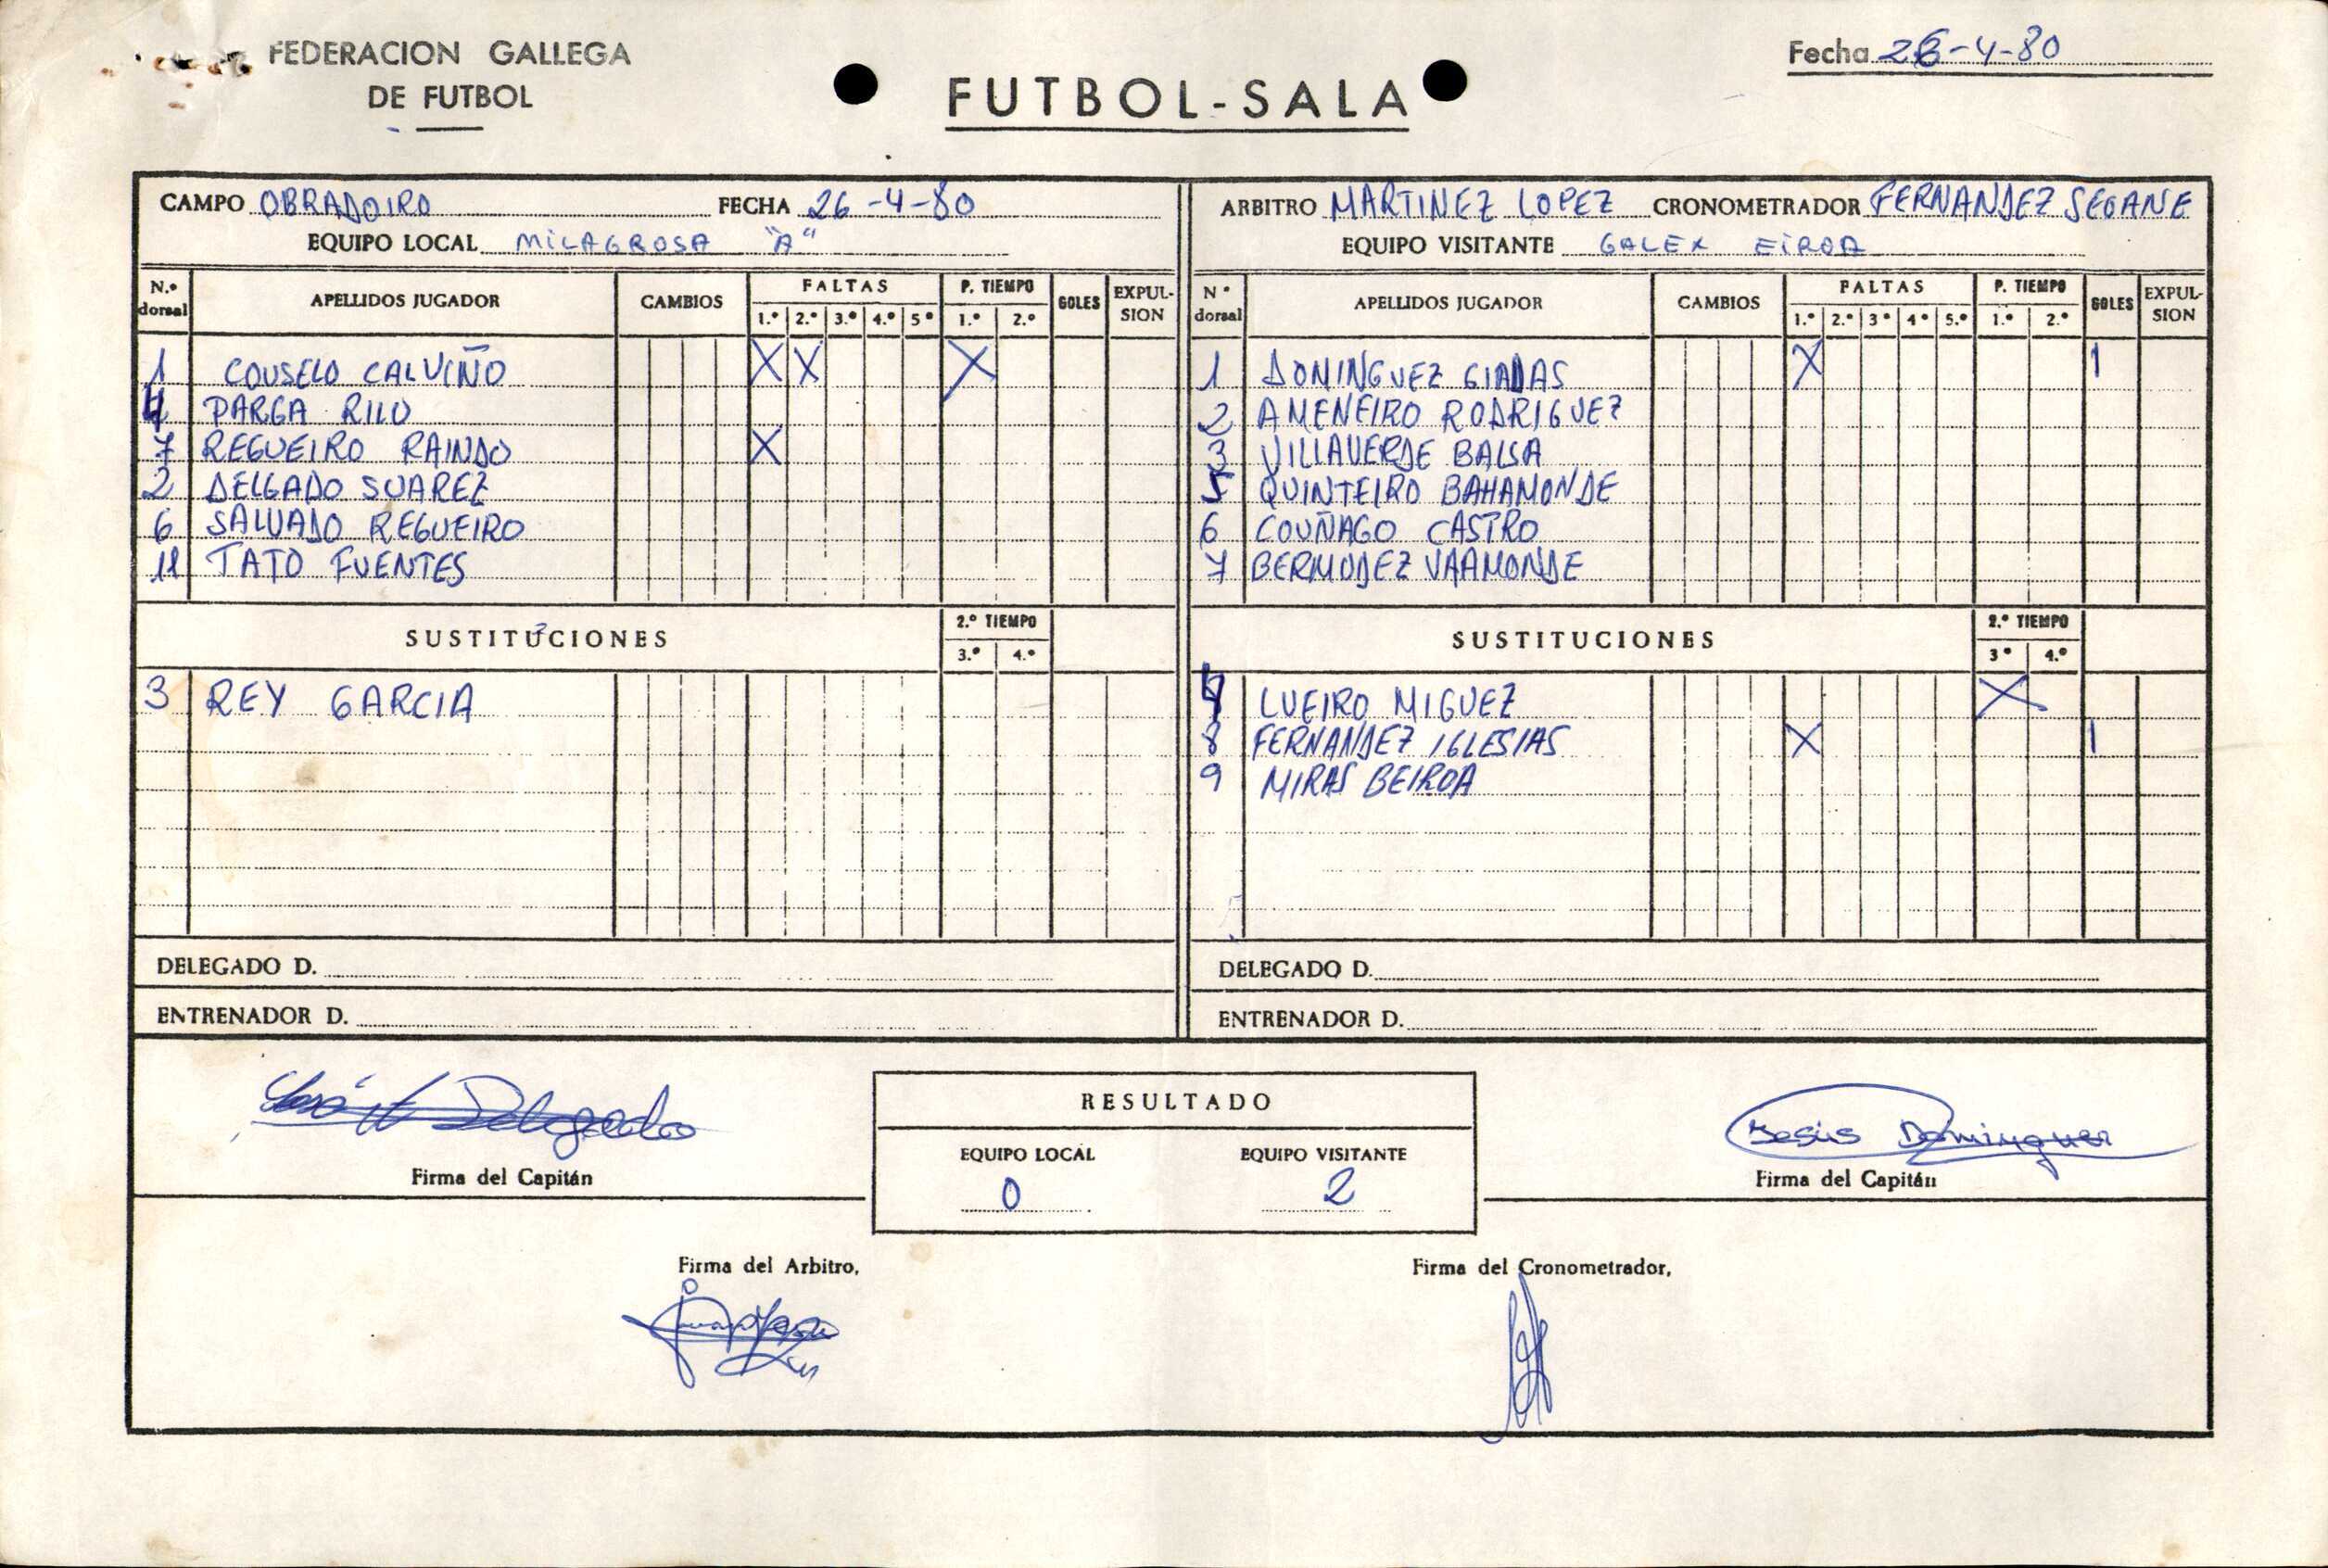 FEDERACION GALLEGA
DE FUTBOL
FUTBOL-SALA
Fecha 26-4-80
CAMPO OBRADOIRO FECHA 26-4-80
EQUIPO LOCAL MILAGROSA "A"
N.º dorsal APELLIDOS JUGADOR CAMBIOS FALTAS 1.º 2.º 3.º 4.º 5º P. TIEMPO 1.º 2.º GOLES EXPUL-SION
1 COUSELO CALVIÑO X X X
4 PARGA RILO
7 REGUEIRO RAINDO X
2 DELGADO SUAREZ
6 SALVADO REGUEIRO
11 TATO FUENTES
SUSTITUCIONES 2.º TIEMPO 3.º 4.º
3 REY GARCIA
DELEGADO D.
ENTRENADOR D.
ARBITRO MARTINEZ LOPEZ CRONOMETRADOR FERNANDEZ SEOANE
EQUIPO VISITANTE GALEX EIROA
Nº dorsal APELLIDOS JUGADOR CAMBIOS FALTAS 1.º 2.º 3º 4º 5.º P. TIEMPO 1.º 2.º GOLES EXPUL-SION
1 DOMINGUEZ GIADAS X 1
2 AMENEIRO RODRIGUEZ
3 VILLAVERDE BALSA
5 QUINTEIRO BAHAMONDE
6 COUÑAGO CASTRO
7 BERMUDEZ VAAMONDE
SUSTITUCIONES 2.º TIEMPO 3º 4.º
4 LUEIRO MIGUEZ X
8 FERNANDEZ IGLESIAS X 1
9 MIRAS BEIROA
DELEGADO D.
ENTRENADOR D.
José Delgado
Firma del Capitán
RESULTADO
EQUIPO LOCAL EQUIPO VISITANTE
0 2
Jesús Dominguez
Firma del Capitán
Firma del Arbitro,
Firma del Cronometrador,